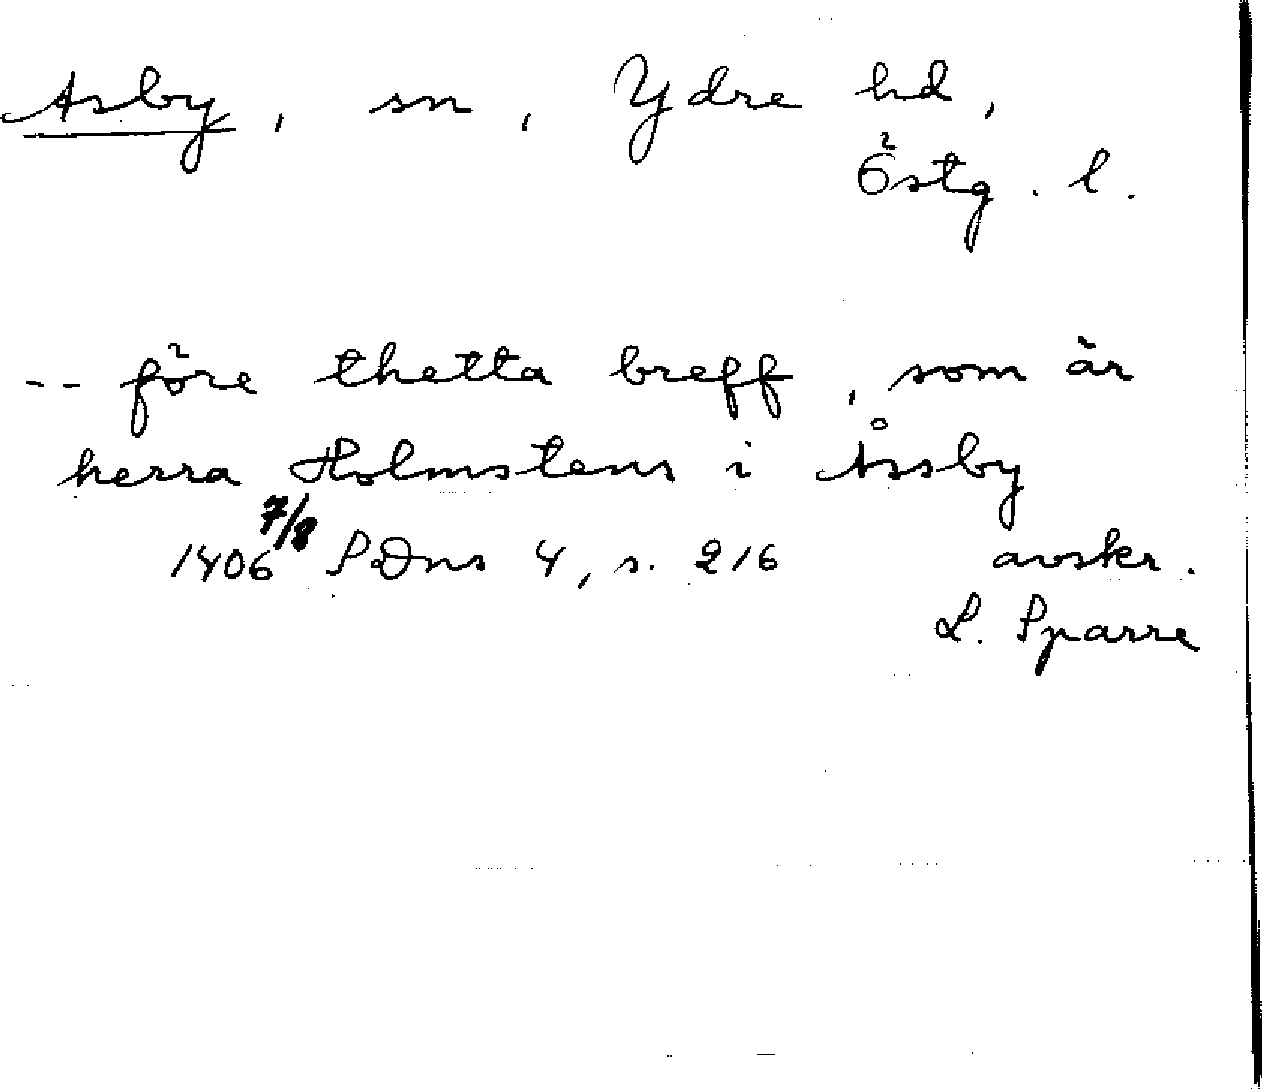 Asby, sn, Ydre hd,
Östg. l.
-- före thetta breff, som är
herra Holmstens i Åssby
1406 7/8 SDns 4, s. 216 avskr.
L. Sparre